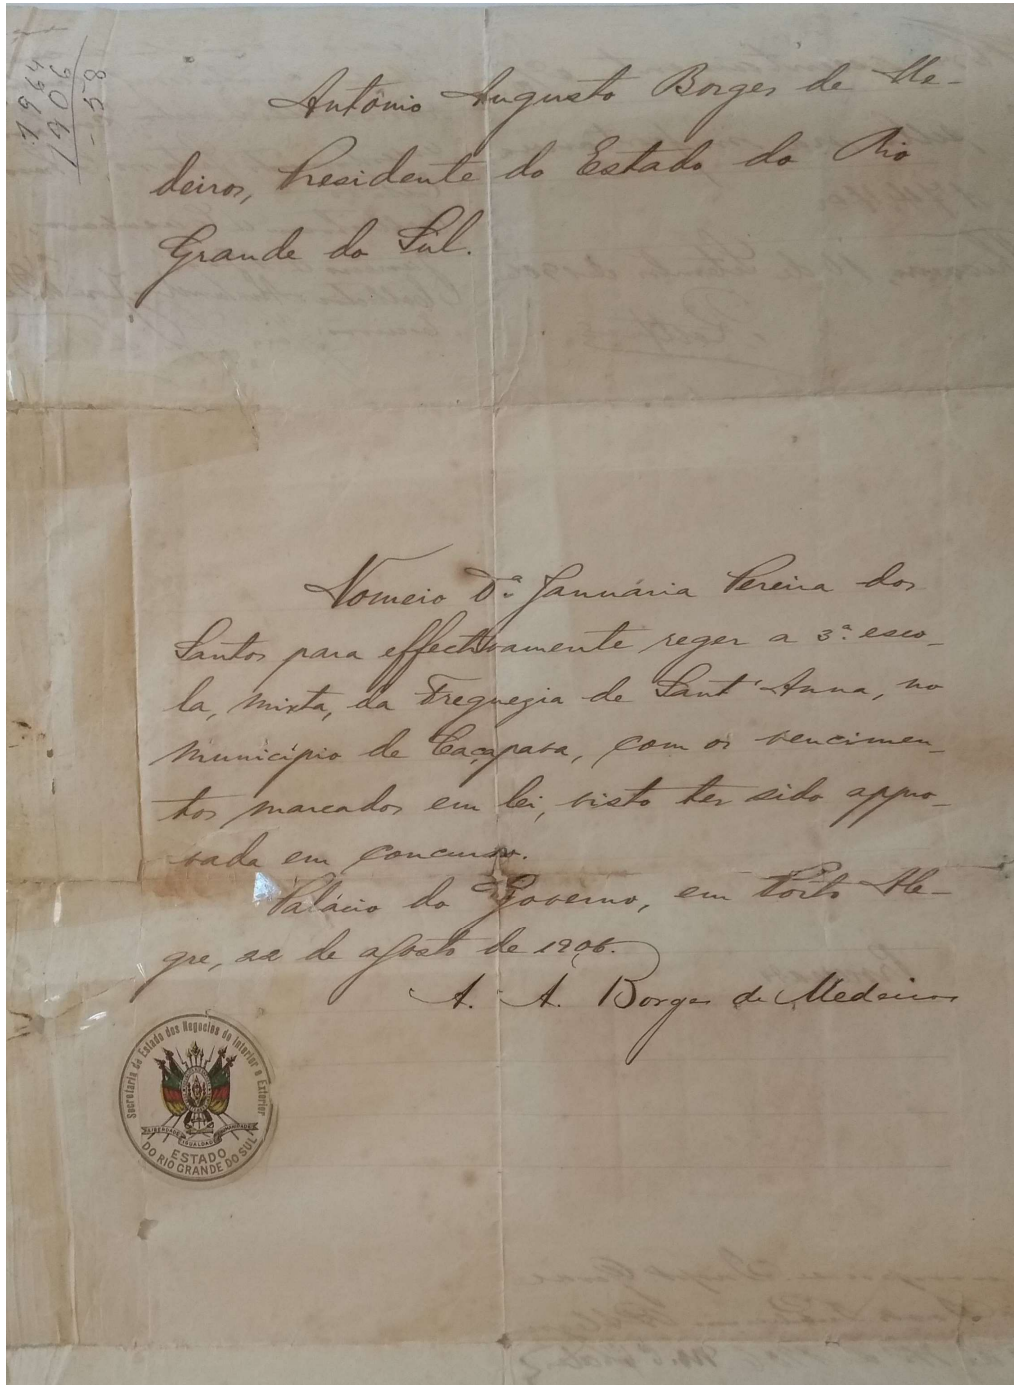 1964
1906
- 58
Antonio Augusto Borges de Me-
deiros, Presidente do Estado do Rio
Grande do Sul.
Nomeio D.ª Januária Pereira dos
Santos para effectivamente reger a 3.ª esco-
la, mixta, da Freguezia de Sant'Anna, no
município de Caçapava, com os vencimen-
tos marcados em lei, visto ter sido appro-
vada em concurso.
Palácio do Governo, em Porto Ale-
gre, 22 de agosto de 1906.
A. A. Borges de Medeiros
Secretaria de Estado dos Negocios do Interior e Exterior
LIBERDADE IGUALDADE HUMANIDADE
ESTADO
DO RIO GRANDE DO SUL